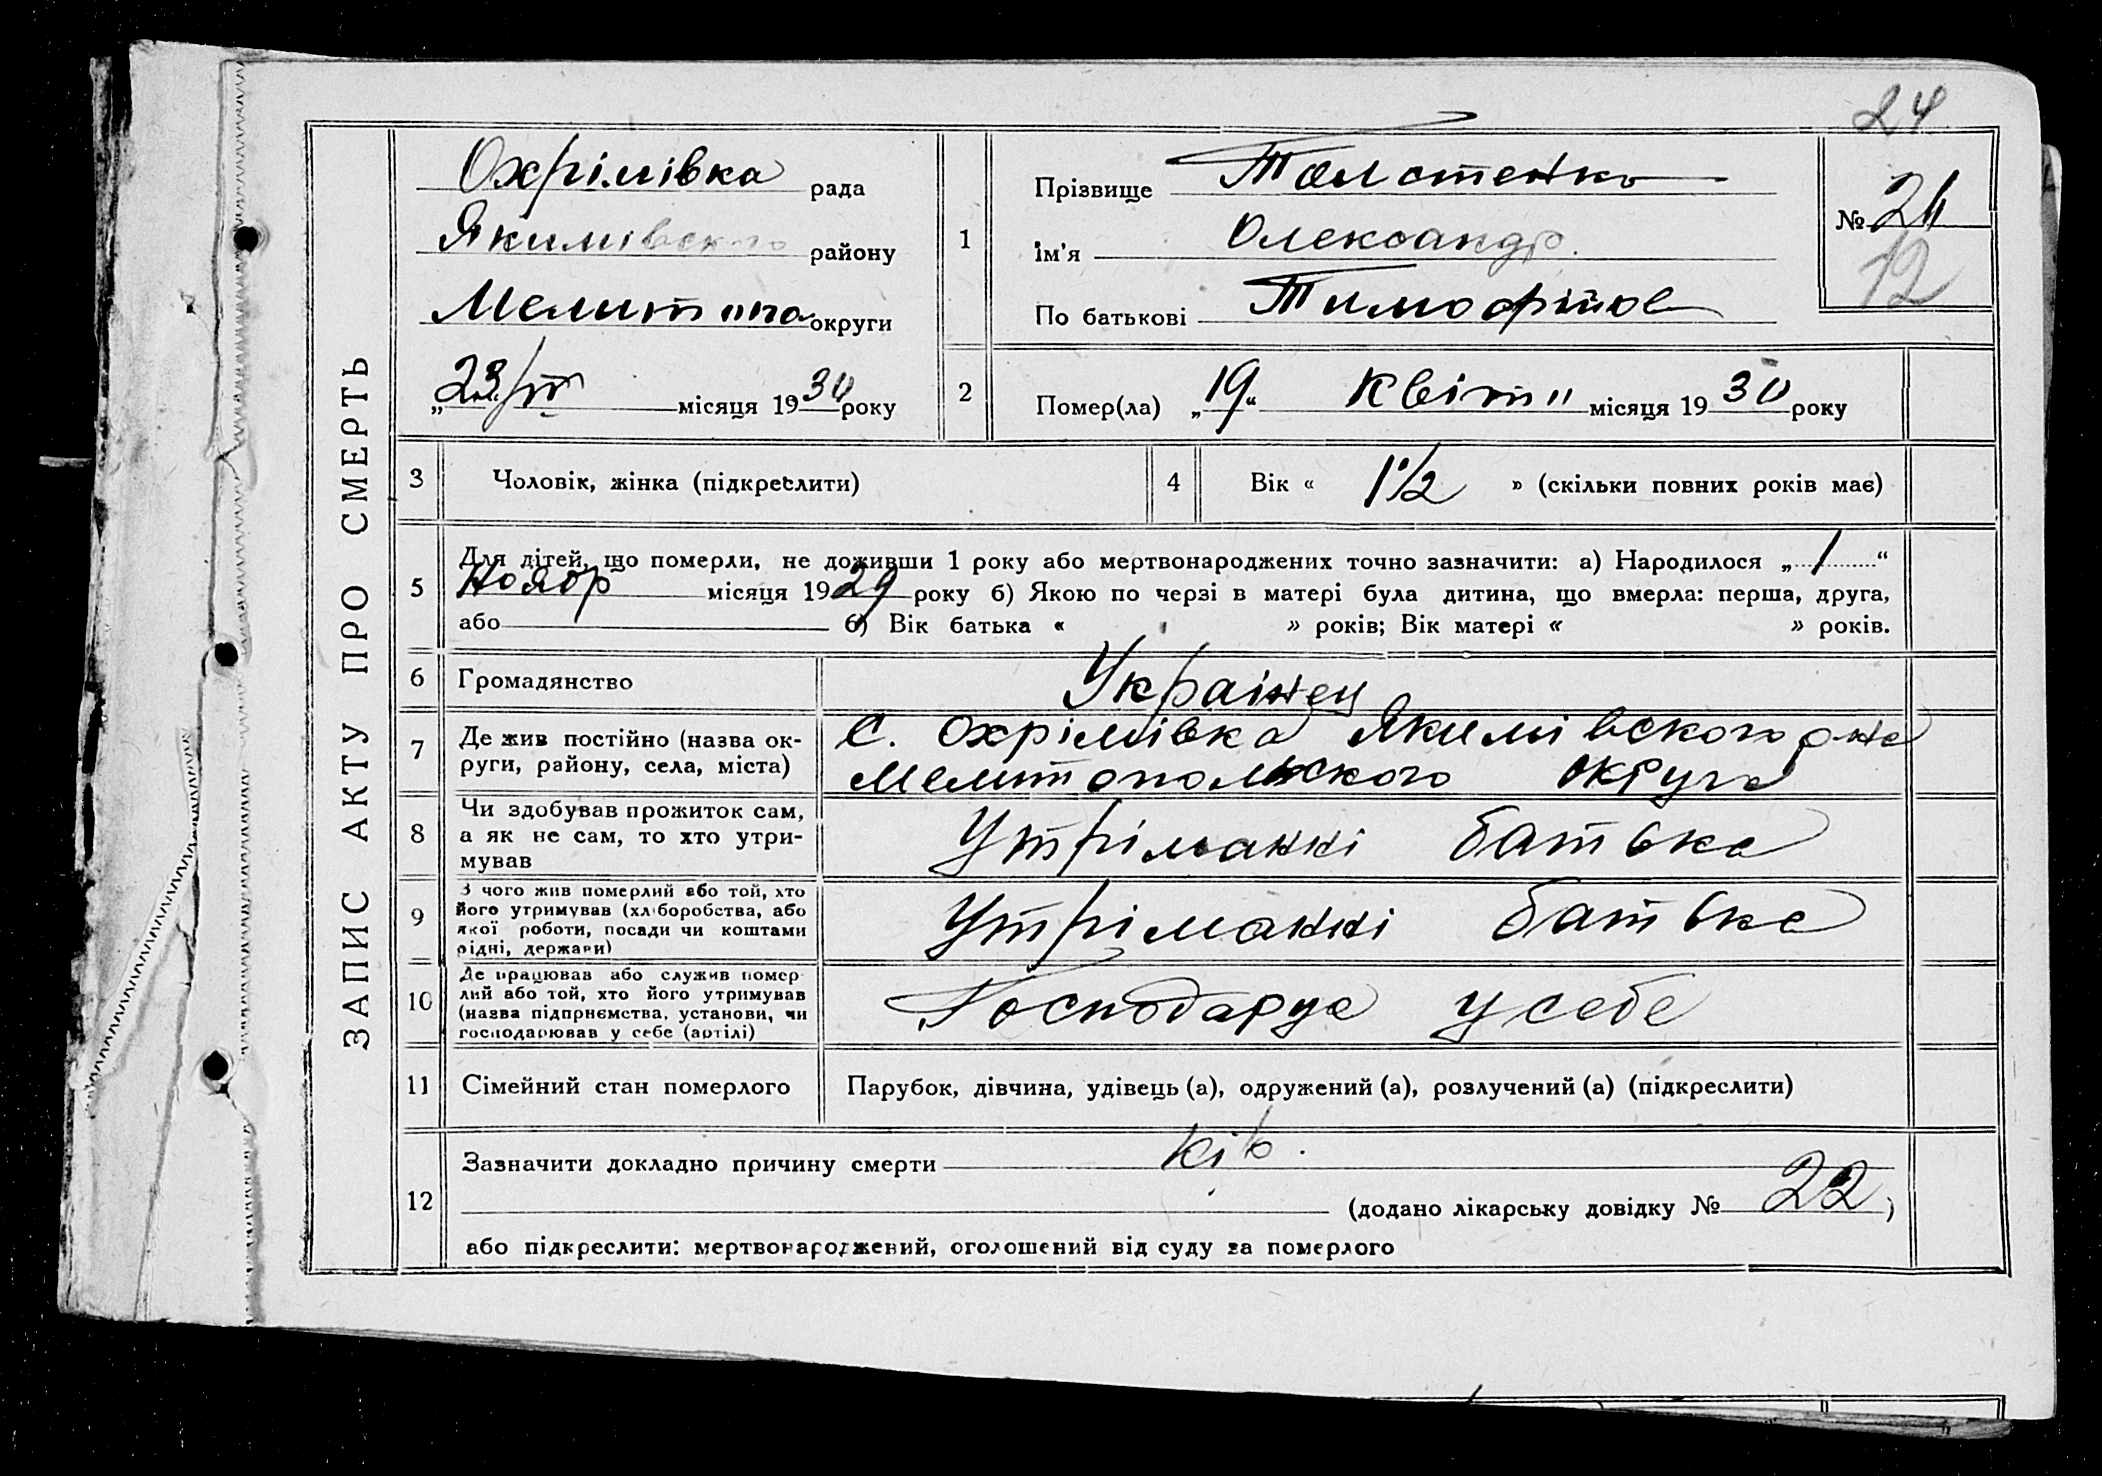 24
ЗАПИС АКТУ ПРО СМЕРТЬ
Охрімівка рада
Якимівского району
Мелитопо округи
„23/IV місяця 1930 року
1
Прізвище Толстенко
Ім'я Олександр.
По батькові Тимофійов
№ 24
12
2
Помер(ла) „19“ Квітн місяця 1930 року
3
Чоловік, жінка (підкреслити)
4
Вік « 1 1/2 » (скільки повних років має)
5
Для дітей, що померли, не доживши 1 року або мертвонароджених точно зазначити: а) Народилося „1“
Ноябр місяця 1929 року б) Якою по черзі в матері була дитина, що вмерла: перша, друга,
або б) Вік батька « » років; Вік матері « » років.
6
Громадянство Украінец
7
Де жив постійно (назва ок-
руги, району, села, міста)
с. Охрімівка Якимівского рна
Мелитопольского округа
8
Чи здобував прожиток сам,
а як не сам, то хто утри-
мував
Утріманні батька
9
З чого жив померлий або той, хто
його утримував (хліборобства, або
якої роботи, посади чи коштами
рідні, держави)
Утріманні батька
10
Де працював або служив помер-
лий або той, хто його утримував
(назва підприємства, установи, чи
господарював у себе (артілі)
Господарує у себе
11
Сімейний стан померлого
Парубок, дівчина, удівець (а), одружений (а), розлучений (а) (підкреслити)
12
Зазначити докладно причину смерти Кір.
(додано лікарську довідку № 22)
або підкреслити: мертвонароджений, оголошений від суду за померлого